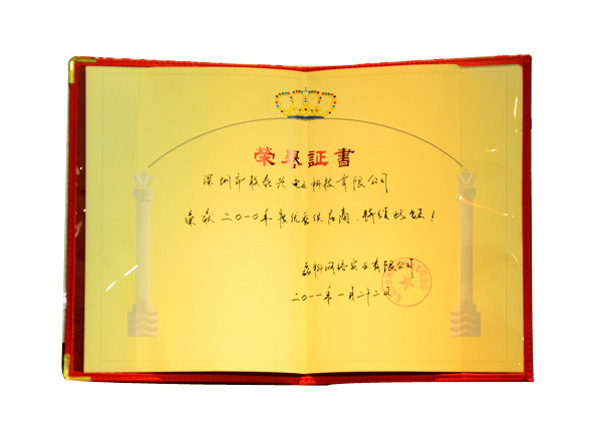 荣誉証書
深圳市联泰兴电子科技有限公司
荣获二〇一〇年度优秀供应商,特颁此证!
磊科网络实业有限公司
二〇一一年一月二十二日